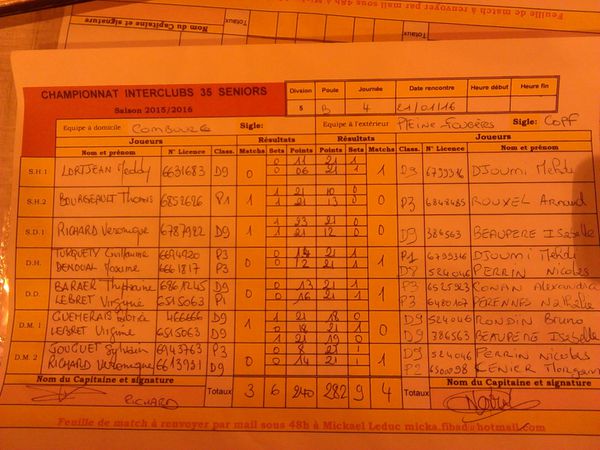 Feuille de match à renvoyer par mail sous 48h à Mick
Nom du Capitaine et signature
Totaux
CHAMPIONNAT INTERCLUBS 35 SENIORS
Saison 2015/2016
Division Poule Journée Date rencontre Heure début Heure fin
5 B 4 21/01/16
Equipe à domicile COMBOURG Sigle: Equipe à l'extérieur PLEINE-FOUGERES Sigle: COPF
Joueurs Résultats Résultats Joueurs
Nom et prénom N° Licence Class. Matchs Sets Points Points Sets Matchs Class. N° Licence Nom et prénom
S.H.1 LORTJEAN Meddy 6631683 D9 0 0 11 21 1 1 D9 6799316 DJOUMI Mehdi
0 06 21 1
S.H.2 BOURGEAULT Thomas 6852626 P1 1 1 21 10 0 0 P3 6848485 ROUXEL Arnaud
1 21 13 0
S.D.1 RICHARD Véronique 6787922 D9 1 1 23 21 0 0 D9 384563 BEAUPERE Isabelle
1 21 12 0
D.H. TURQUETY Guillaume 6694920 P3 0 0 14 21 1 1 P1 6799316 DJOUMI Mehdi
Maxime 6661817 P3 0 12 21 1 524046 PERRIN Nicolas
D.D. BARAER 6861245 D9 0 0 13 21 1 1 P3 6525923 RONAN Alexandra
LEBRET Virginie 6515063 P1 0 16 21 1 P3 PERENNES Nathalie
D.M. 1 466666 D9 1 1 21 18 0 0 D9 524046 RONDIN Bruno
LEBRET Virginie 6515063 D9 0 18 21 1 D9 386563 BEAUPERE Isabelle
1 21 19 0
D.M. 2 JOUGUET Sylvain 6943763 P3 0 0 8 21 1 1 D9 524046 PERRIN Nicolas
RICHARD Véronique 6613931 D9 0 14 21 1 P2 6500098 CENIER Morgane
Nom du Capitaine et signature Totaux 3 6 240 282 9 4 Nom du Capitaine et signature
RICHARD
Feuille de match à renvoyer par mail sous 48h à Mickael Leduc micka.fibad@hotmail.com